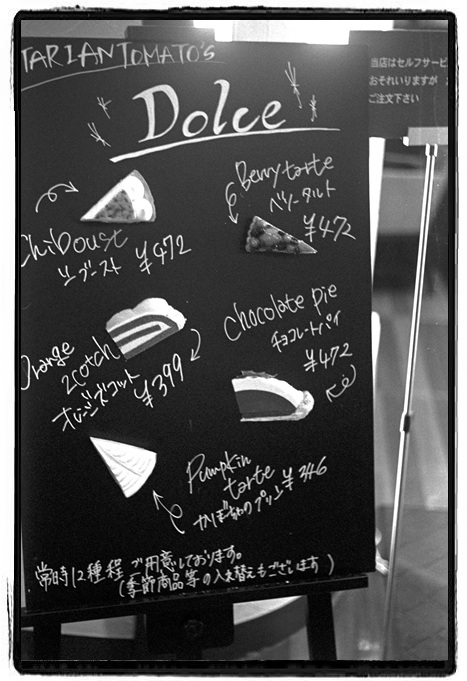 TARIAN TOMATO'S
Dolce
Chiboust
シブースト ¥472
Berry tarte
ベリータルト
¥472
Orange
zcotch
オレンジズコット ¥399
Chocolate pie
チョコレートパイ
¥472
Pumpkin
tarte
かぼちゃのプリン ¥346
常時12種程ご用意しております。
(季節商品等の入れ替えもございます)
当店はセルフサービ
おそれいりますが
ご注文下さい